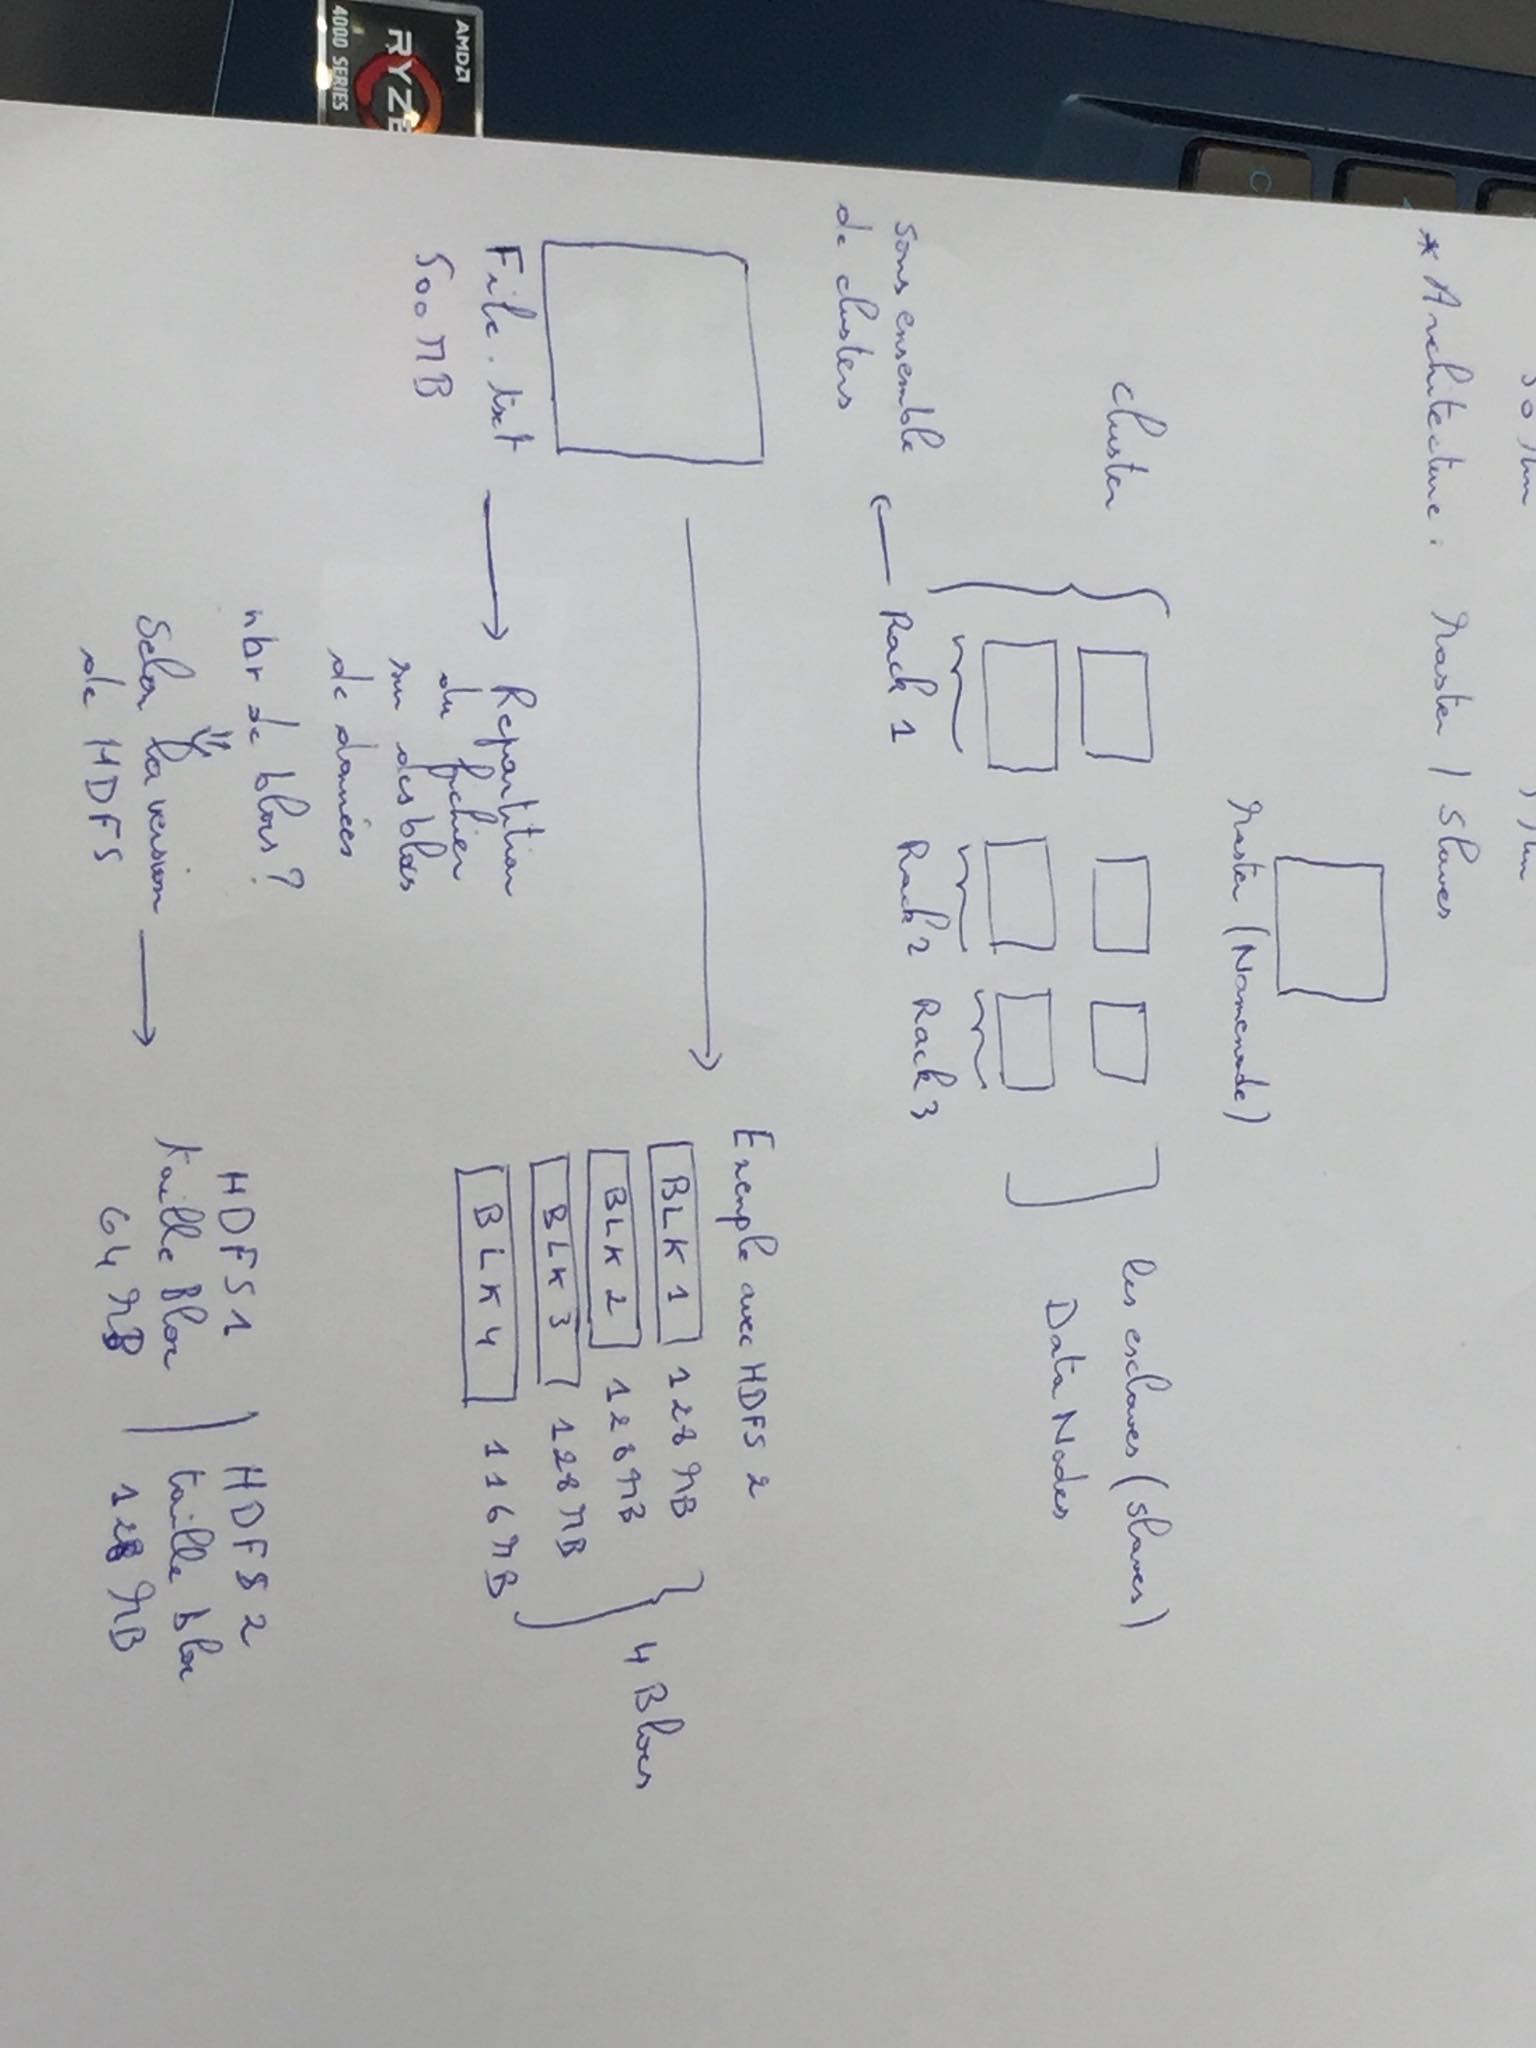 * Architecture : Master / Slaves
Master (Namenode)
cluster
les esclaves (slaves)
Data Nodes
Rack 1
Rack 2
Rack 3
sous ensemble
de clusters
Exemple avec HDFS 2
BLK 1 128 MB
BLK 2 128 MB
BLK 3 128 MB
BLK 4 116 MB
4 Blocs
File.txt
500 MB
Repartition
du fichier
sur des blocs
de données
nbr de blocs ?
Selon la version
de HDFS
HDFS 1
taille Bloc
64 MB
HDFS 2
taille bloc
128 MB
AMD
RYZE
4000 SERIES
C